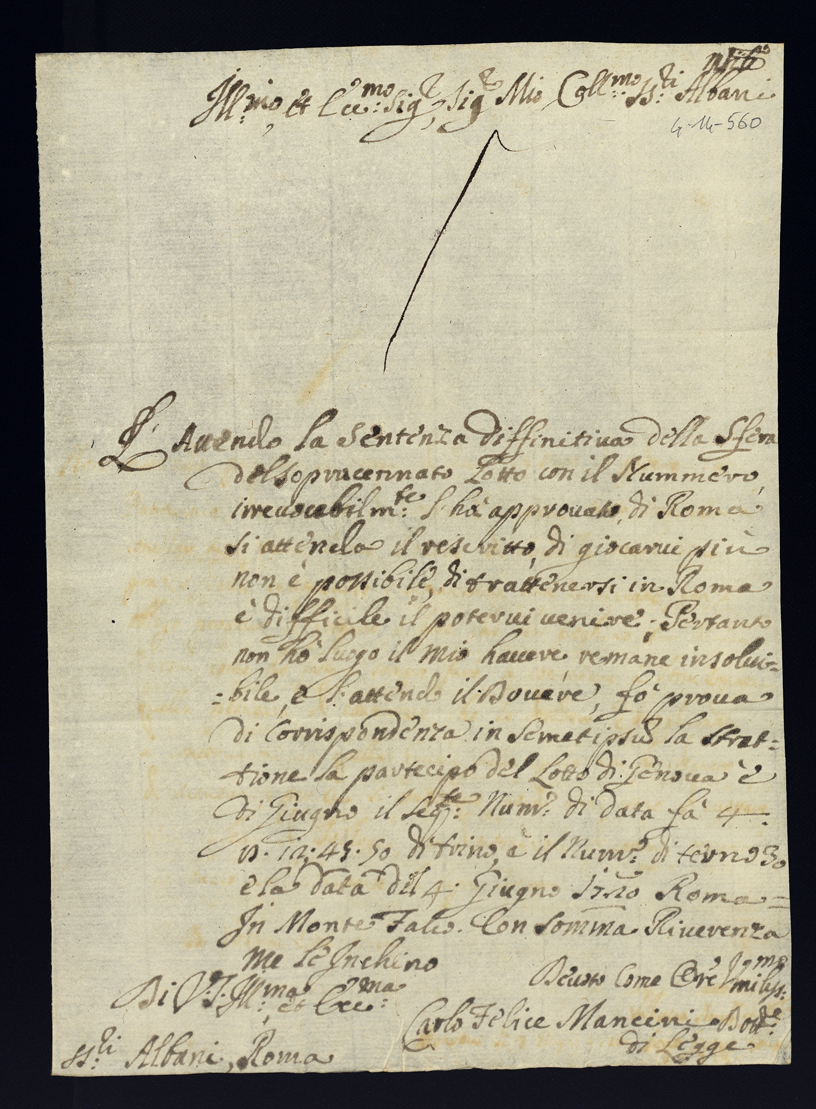 Ill:mo, et Ecc:mo Sigr, Sigr Mio Coll:mo SS:ti Albani
4-14-560
Avendo la Sentenza diffinitiva della Sfera
del sopracennato Lotto con il Nummero,
irrevocabilm:te S'hà approvato, di Roma
si attenda il rescritto, di giocarvi più
non è possibile, di trattenersi in Roma
è difficile il potervi venire; Pertanto
non hò luogo il mio havere remane insolvi-
-bile, e S'attende il Dovere, fò prova
di Corrispondenza in Semetipsũ la Strat-
tione la partecipò del Lotto di Genova è
di Giugno il Seg:te Num:o di data fà 4
12. 45. 50 di trino, è il Num:o di terno 30
e la data del 4. Giugno Roma =
In Monte Falco. Con Somma Riverenza
me Le Inchino
Di V:S: Ill:ma, et Ecc:ma
Devoto Come Umiliss:mo
Carlo Felice Mancini Dott:e
di Legge
SS:ti Albani, Roma